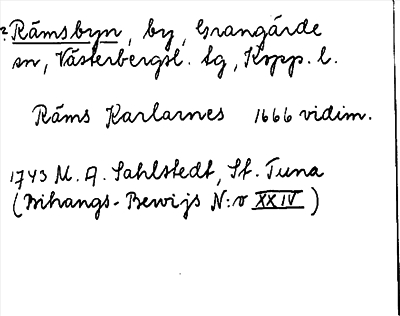 ? Rämsbyn, by, Grangärde
sn, Västerbergsl. lg, Kopp. l.
Räms Karlarnes 1666 vidim.
1743 M. A. Sahlstedt, St. Tuna
(Bihangs-Bewijs N:o XXIV)